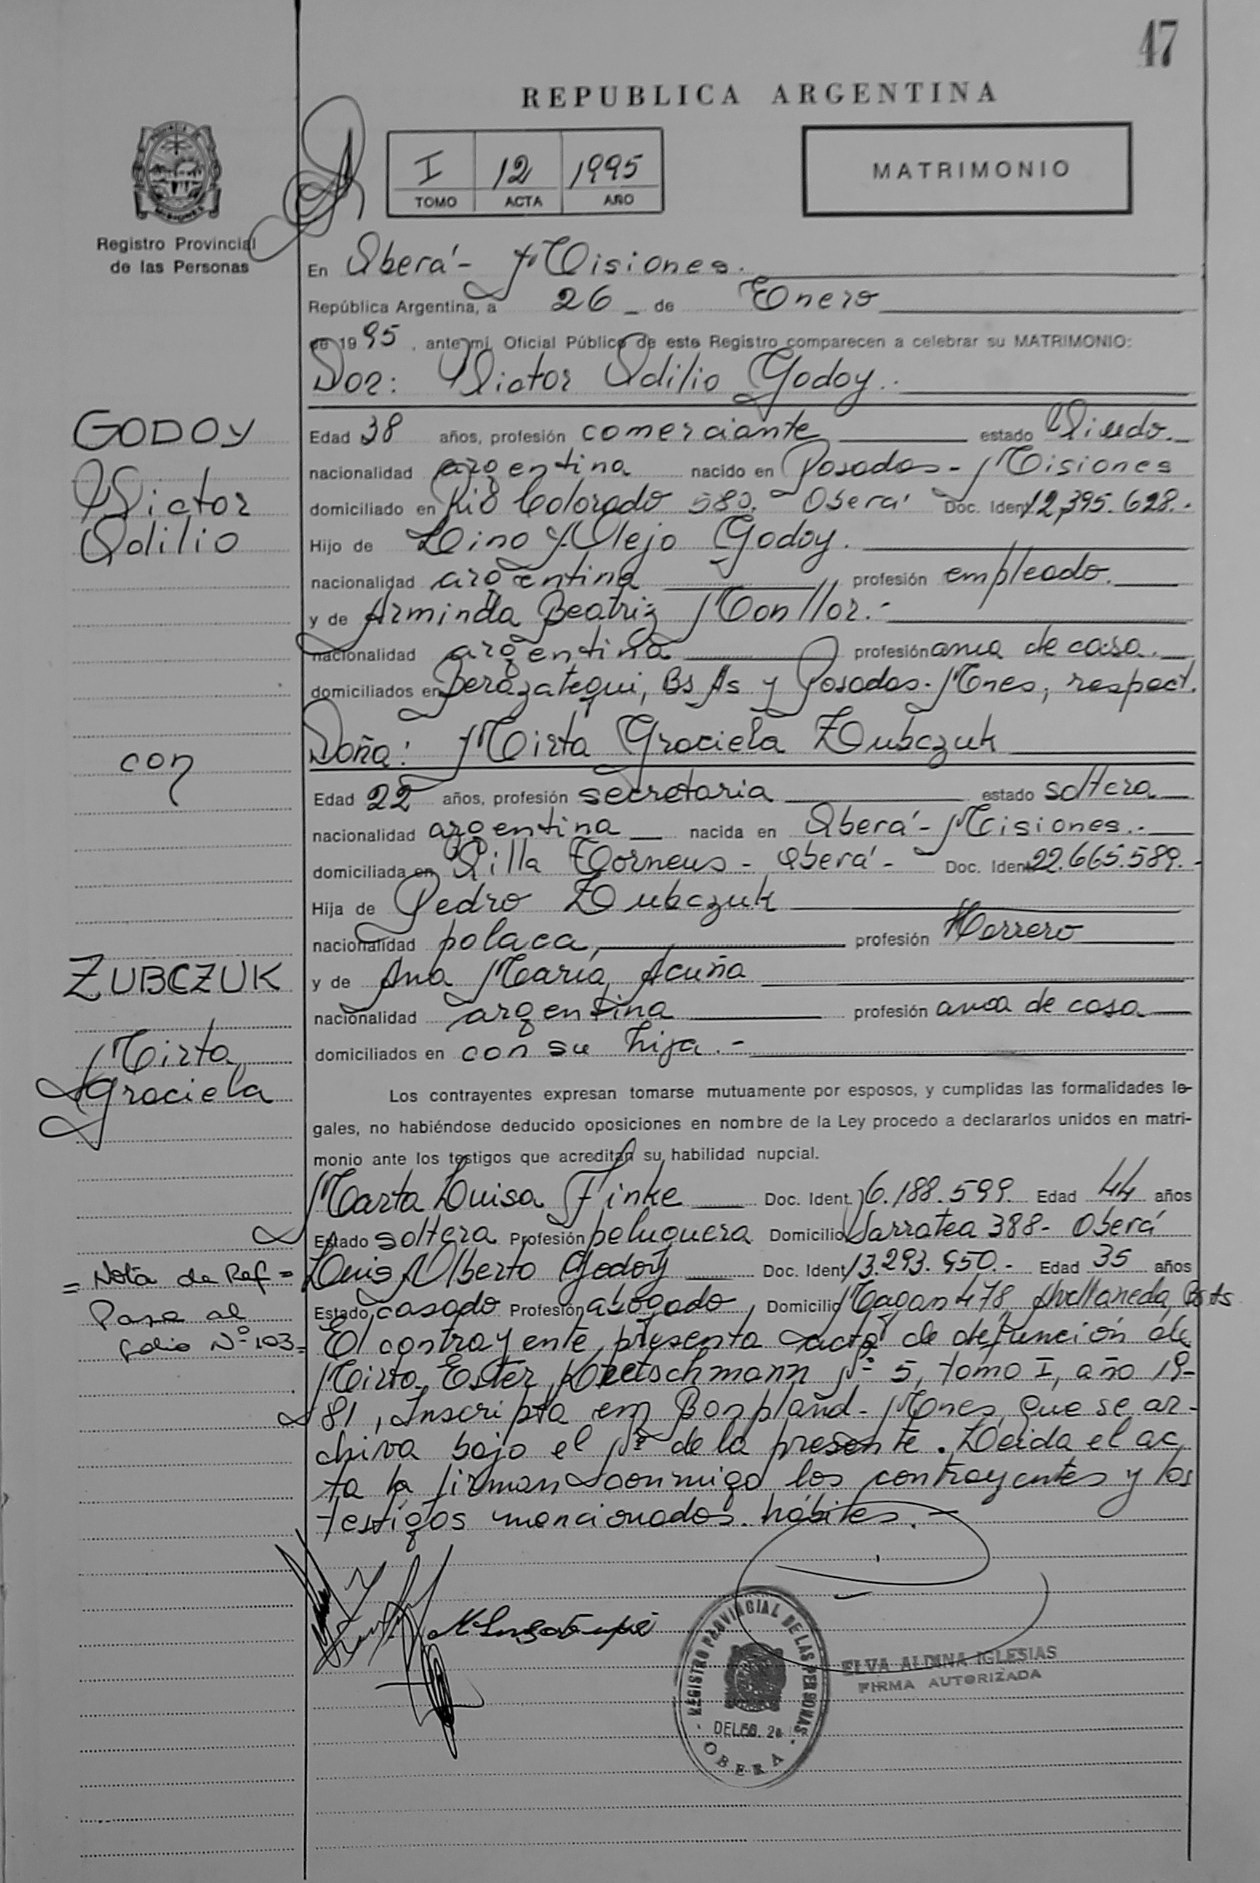 47
REPUBLICA ARGENTINA
I 12 1995
TOMO ACTA AÑO
MATRIMONIO
Registro Provincial
de las Personas
En Oberá - Misiones.
República Argentina, a 26 de Enero
de 1995, ante mi, Oficial Público de este Registro comparecen a celebrar su MATRIMONIO:
Don: Victor Odilio Godoy.
GODOY
Victor
Odilio
Edad 38 años, profesión comerciante estado Viudo.
nacionalidad argentina nacido en Posadas - Misiones
domiciliado en Río Colorado 580. Oberá Doc. Ident. 12,395.628.-
Hijo de Lino Alejo Godoy.
nacionalidad argentina profesión empleado.
y de Arminda Beatriz Monllor.-
nacionalidad argentina profesión ama de casa.
domiciliados en Berazategui, Bs As y Posadas - Mnes, respect.
con
Doña: Mirta Graciela Zubczuk
Edad 22 años, profesión secretaria estado soltera
nacionalidad argentina nacida en Oberá - Misiones.-
domiciliada en Villa Torneus - Oberá - Doc. Ident. 22.665.589.-
Hija de Pedro Zubczuk
nacionalidad polaca, profesión Herrero
ZUBCZUK
Mirta
Graciela
y de Ana María Acuña
nacionalidad argentina profesión ama de casa
domiciliados en con su hija.-
Los contrayentes expresan tomarse mutuamente por esposos, y cumplidas las formalidades le-
gales, no habiéndose deducido oposiciones en nombre de la Ley procedo a declararlos unidos en matri-
monio ante los testigos que acreditan su habilidad nupcial.
Marta Luisa Finke Doc. Ident. 6.188.599. Edad 44 años
Estado soltera Profesión peluquera Domicilio Sarratea 388 - Oberá
Luis Alberto Godoy Doc. Ident. 13.293.950.- Edad 35 años
Estado casado Profesión abogado, Domicilio Magan 478, Avellaneda, Bs As
= Nota de Ref =
Pasa al
folio Nº 103 =
El contrayente presenta acta de defunción de
Mirta Ester Kretschmann Nº 5, tomo I, año 19-
81, Inscripta em Bonpland - Mnes, que se ar-
chiva bajo el Nº de la presente. Leída el ac
ta la firman conmigo los contrayentes y los
testigos mencionados. hábiles.-
REGISTRO PROVINCIAL DE LAS PERSONAS
OBERA
ELVA ALDINA IGLESIAS
FIRMA AUTORIZADA